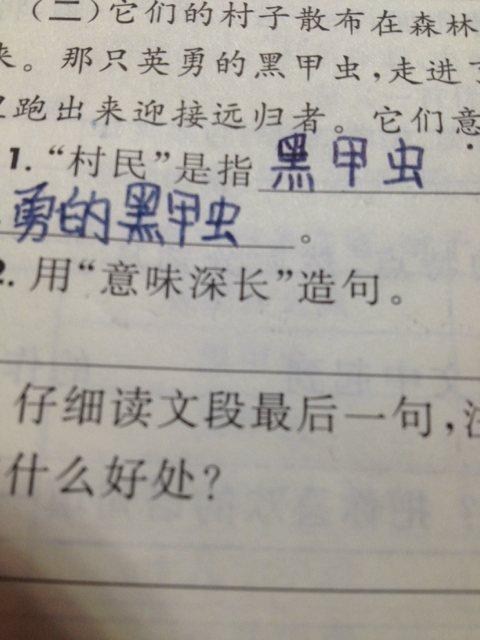 (二)它们的村子散布在森林
来。那只英勇的黑甲虫,走进了
跑出来迎接远归者。它们意
1.“村民”是指 黑甲虫
勇的黑甲虫。
2.用“意味深长”造句。
仔细读文段最后一句,注
什么好处?